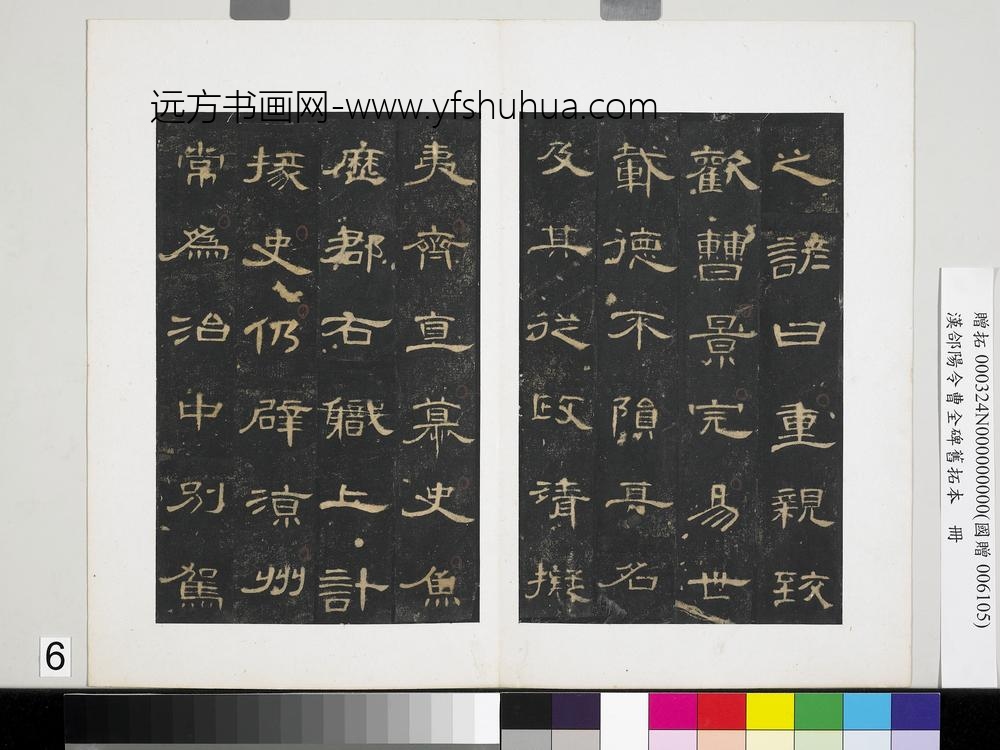 远方书画网-www.yfshuhua.com
之諺曰重親致
歡曹景完易世
載德不隕其名
及其從政清擬
夷齊直慕史魚
歷郡右職上計
掾史仍辟涼州
常為治中別駕
贈拓 000324N000000000(國贈 006105)
漢郃陽令曹全碑舊拓本 冊
6